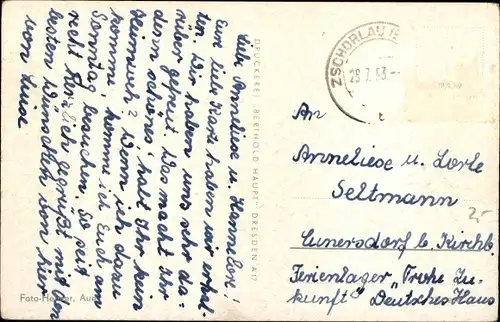 Liebe Anneliese u. Hannelore!
Eure liebe Karte haben wir erhal-
ten. Wir haben uns sehr da-
rüber gefreut. Was macht Ihr
denn schönes, habt Ihr kein
Heimweh? Wenn ich dazu
komme, komme ich Euch am
Sonntag besuchen. So seit
recht herzlich gegrüßt mit den
besten Wünschen von hier
von Luise
DRUCKEREI BERTHOLD HAUPT DRESDEN A17
Foto-Heiner, Aue
ZSCHORLAU
28.7.53.-
An
Anneliese u. Lorle
Seltmann
Cunersdorf b. Kirchb.
Ferienlager „Frohe Zu-
kunft" Deutsches Haus
2,-